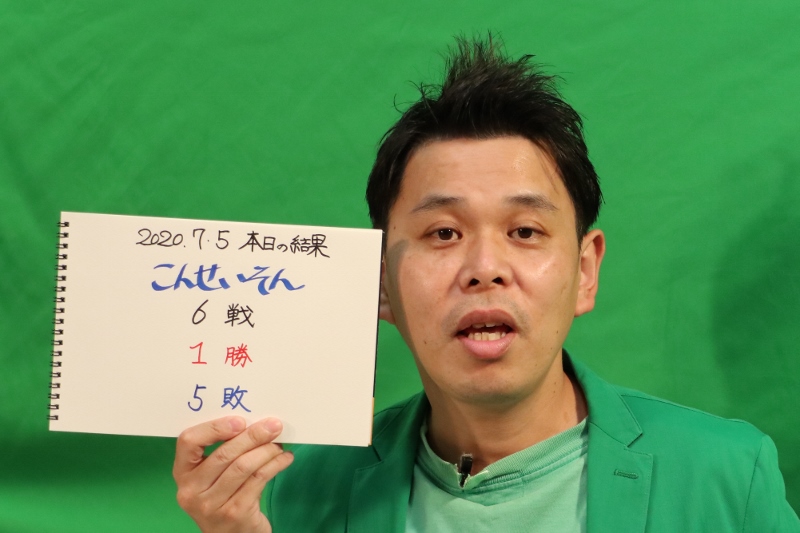 2020.7.5 本日の結果
こんせいそん
6 戦
1 勝
5 敗